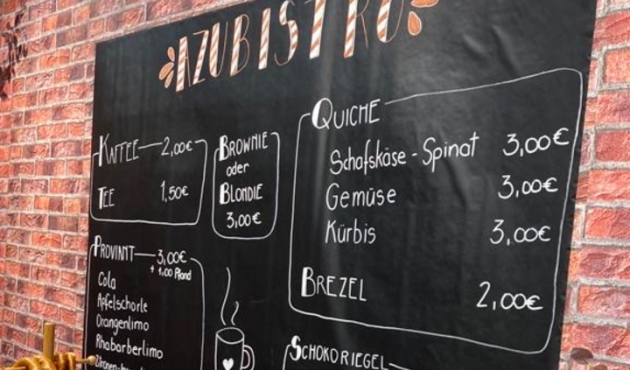 AZUBISTRO
KAFFEE 2,00€
TEE 1,50€
BROWNIE
oder
BLONDIE
3,00€
QUICHE
Schafskäse - Spinat 3,00€
Gemüse 3,00€
Kürbis 3,00€
BREZEL 2,00€
PROVIANT 3,00€
+ 1,00 Pfand
Cola
Apfelschorle
Orangenlimo
Rhabarberlimo
SCHOKORIEGEL